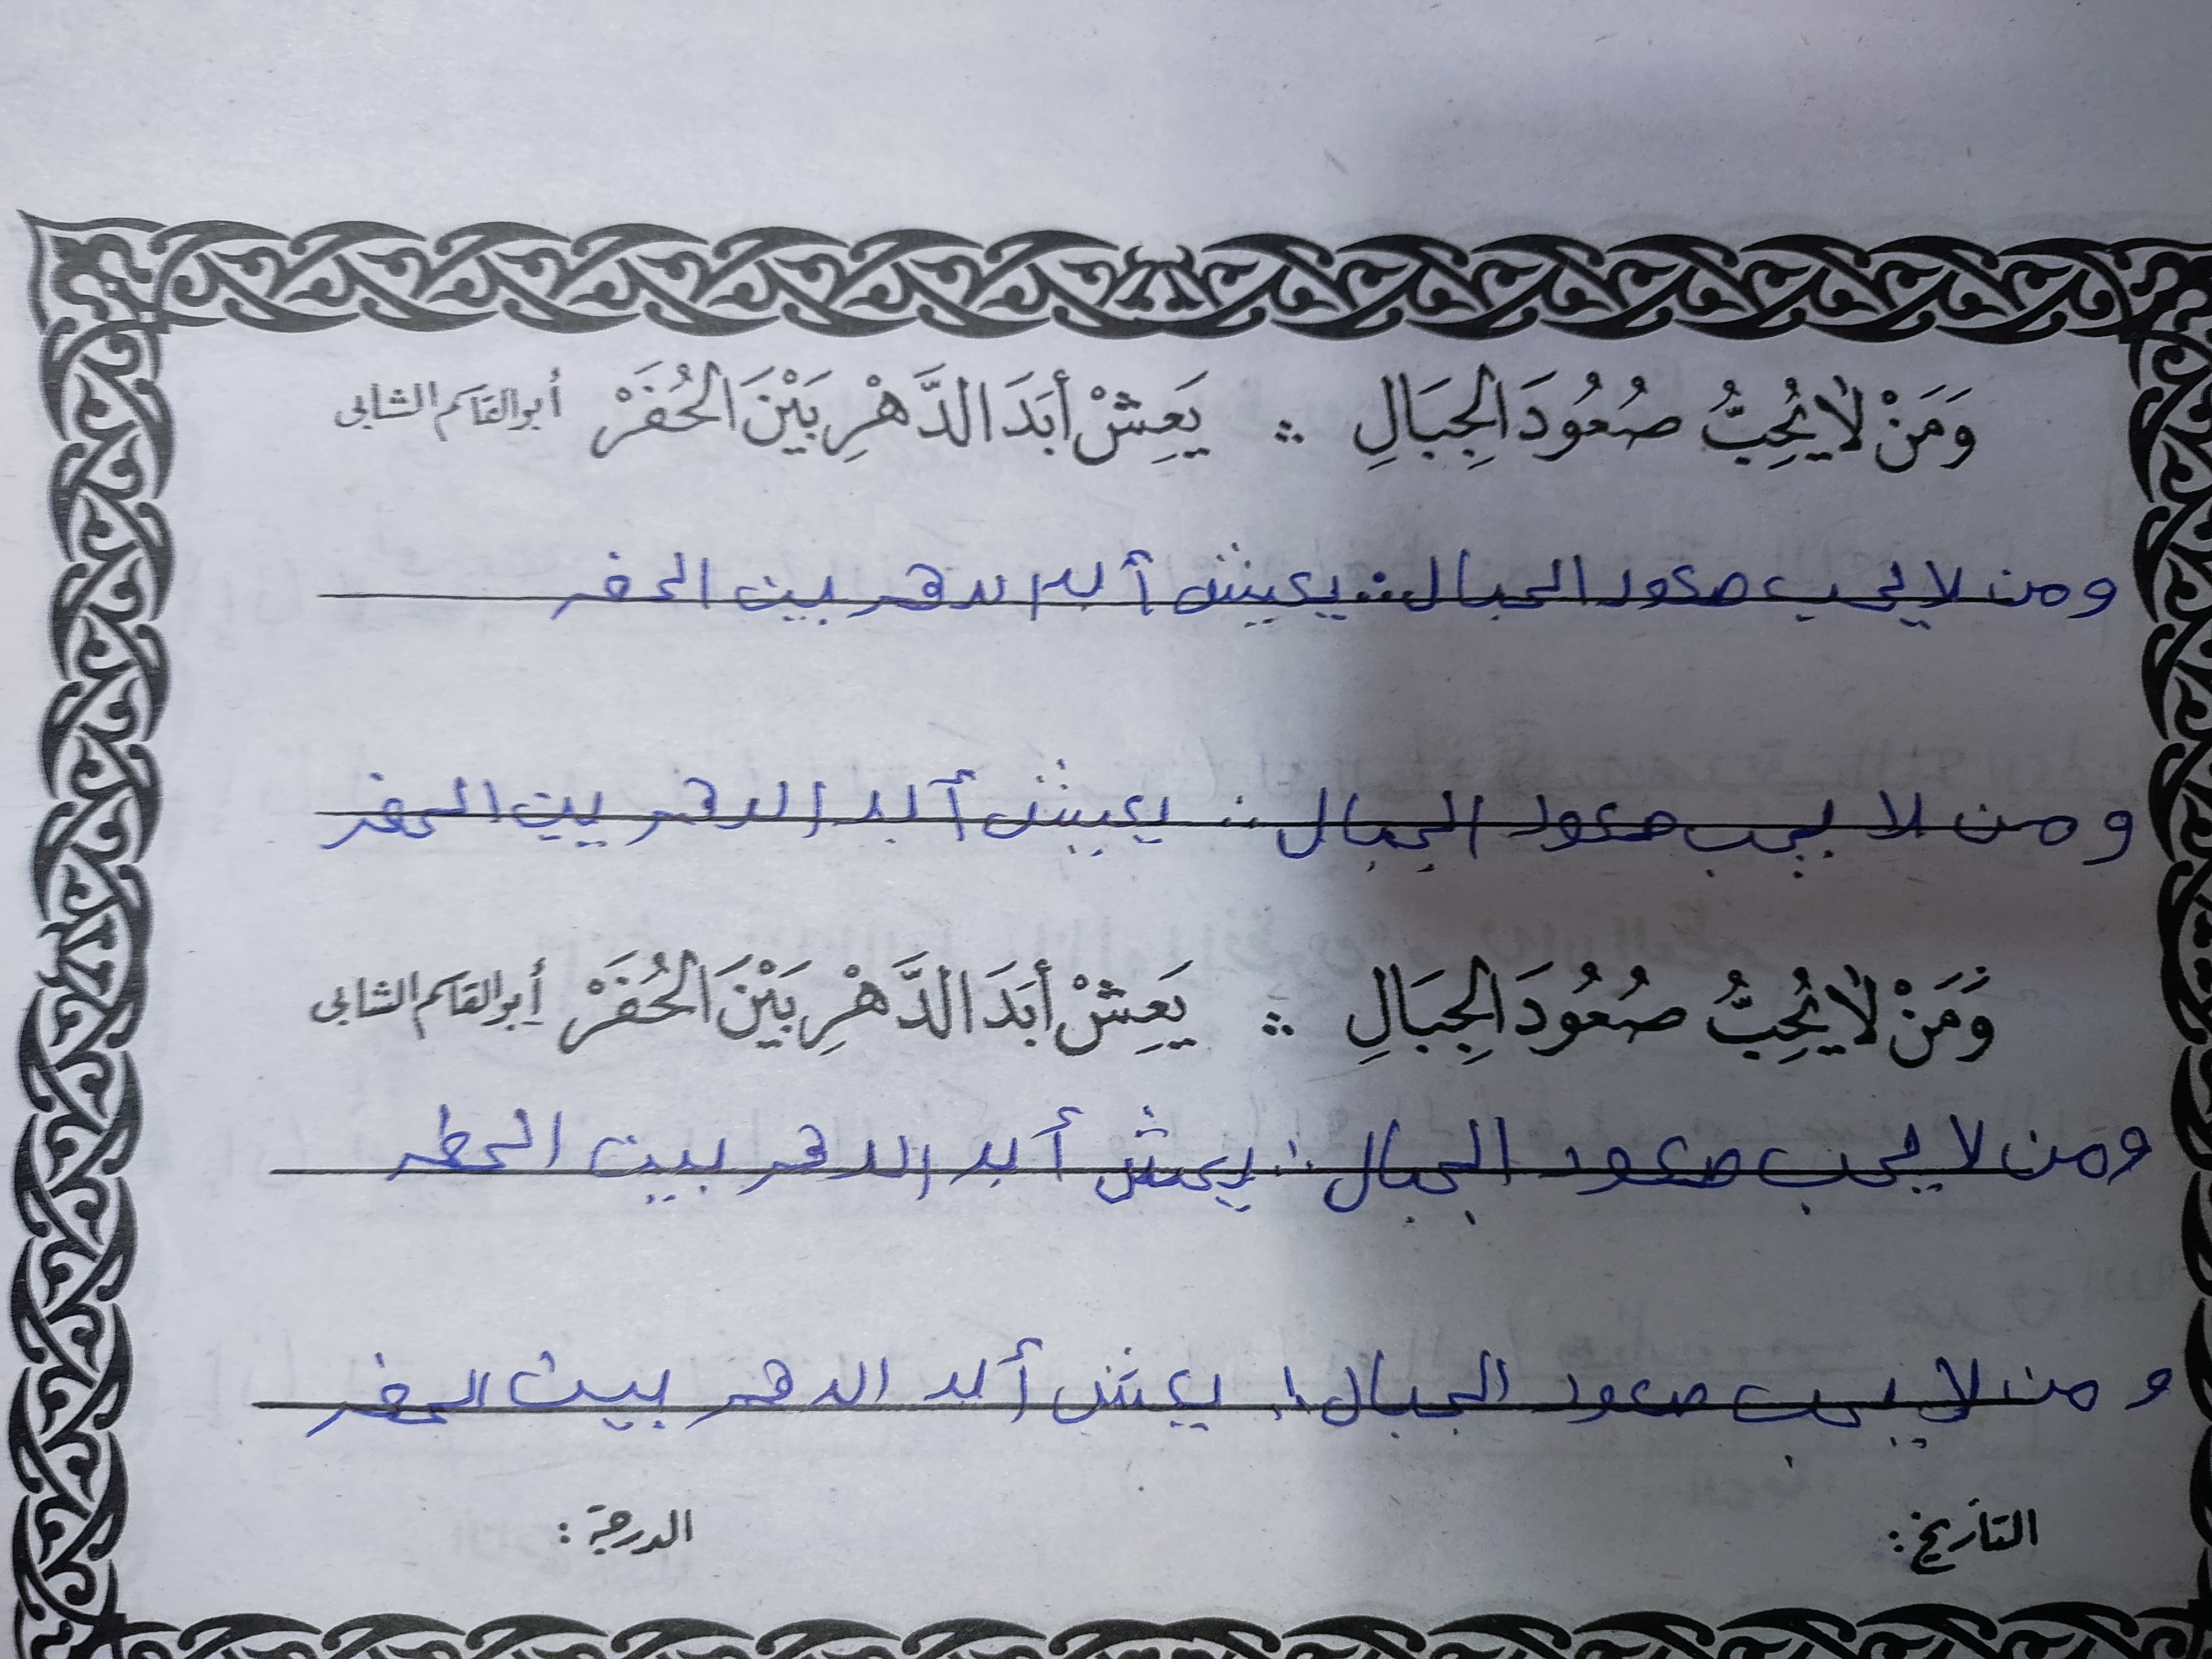 وَمَنْ لَا يُحِبُّ صُعُودَ الجِبَالِ ∴ يَعِشْ أَبَدَ الدَّهْرِ بَيْنَ الحُفَرْ أبو القاسم الشابي
ومن لا يحب صعود الجبال ∴ يعيش أبد الدهر بين الحفر
ومن لا يحب صعود الجبال ∴ يعيش أبد الدهر بين الحفر
وَمَنْ لَا يُحِبُّ صُعُودَ الجِبَالِ ∴ يَعِشْ أَبَدَ الدَّهْرِ بَيْنَ الحُفَرْ أبو القاسم الشابي
ومن لا يحب صعود الجبال ∴ يعش أبد الدهر بين الحطر
ومن لا يحب صعود الجبال ∴ يعش أبد الدهر بين الحفر
التأريخ: الدرجة: